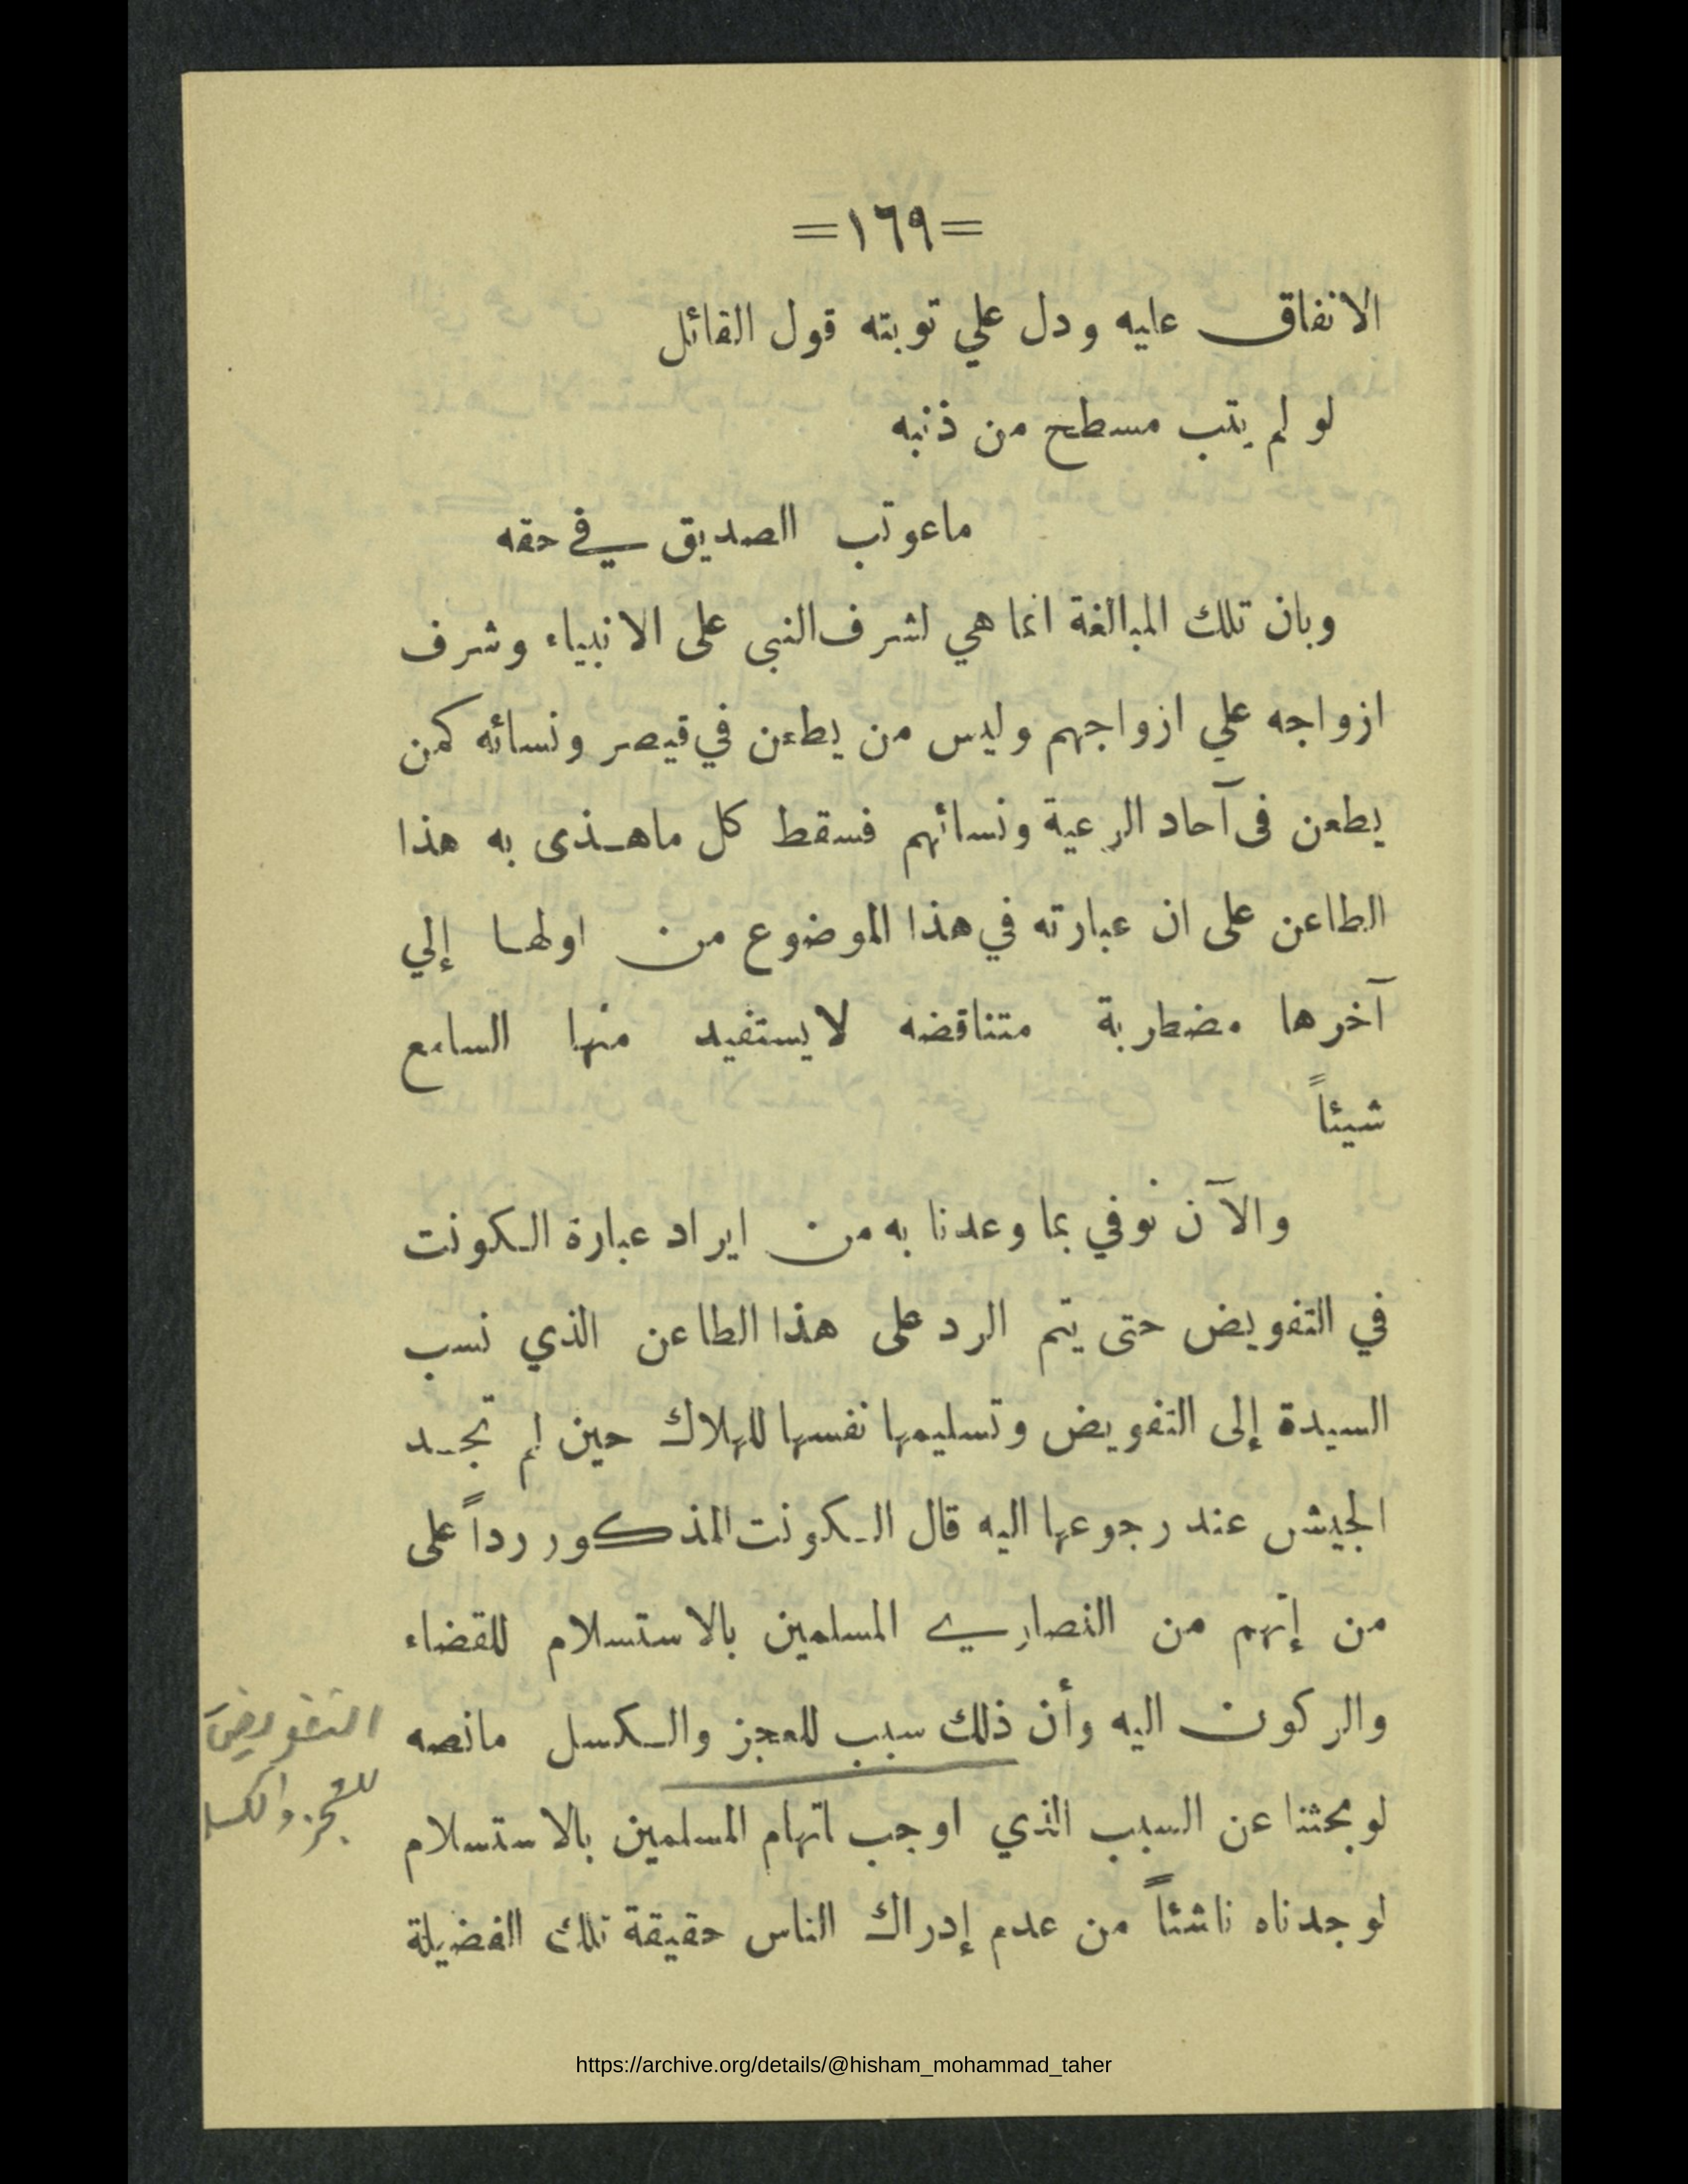 =١٦٩=
الانفاق عليه ودل علي توبته قول القائل
لو لم يتب مسطح من ذنبه
ماعوتب الصديق في حقه
وبان تلك المبالغة انما هي لشرف النبى على الانبياء وشرف
ازواجه علي ازواجهم وليس من يطعن في قيصر ونسائه كمن
يطعن فى آحاد الرعية ونسائهم فسقط كل ماهذى به هذا
الطاعن على ان عبارته في هذا الموضوع من اولها إلي
آخرها مضطربة متناقضه لايستفيد منها السامع
شيئاً
والآن نوفي بما وعدنا به من ايراد عبارة الكونت
في التفويض حتى يتم الرد على هذا الطاعن الذي نسب
السيدة إلى التفويض وتسليمها نفسها للهلاك حين لم تجد
الجيش عند رجوعها اليه قال الكونت المذكور رداً على
من إتهم من النصارى المسلمين بالاستسلام للقضاء
والركون اليه وأن ذلك سبب للعجز والكسل مانصه
التفويض
للعجز والكسل
لو بحثنا عن السبب الذي اوجب اتهام المسلمين بالاستسلام
لوجدناه ناشئاً من عدم إدراك الناس حقيقة تلك الفضيلة
https://archive.org/details/@hisham_mohammad_taher